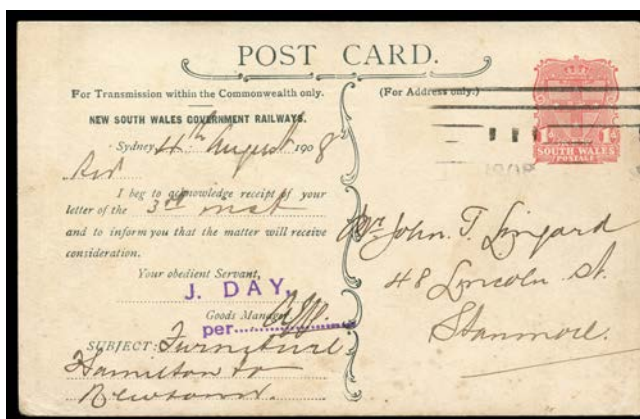 POST CARD.
For Transmission within the Commonwealth only.
(For Address only.)
NEW SOUTH WALES GOVERNMENT RAILWAYS.
Sydney 4th August 1908
I beg to acknowledge receipt of your
letter of the 3rd inst
and to inform you that the matter will receive
consideration.
Your obedient Servant,
J. DAY.
Goods Manager.
per
SUBJECT: Furniture
Hamilton to
Newtown.
1d 1d
SOUTH WALES
POSTAGE
Mr. John. T. Lingard
48 Lincoln St.
Stanmore.